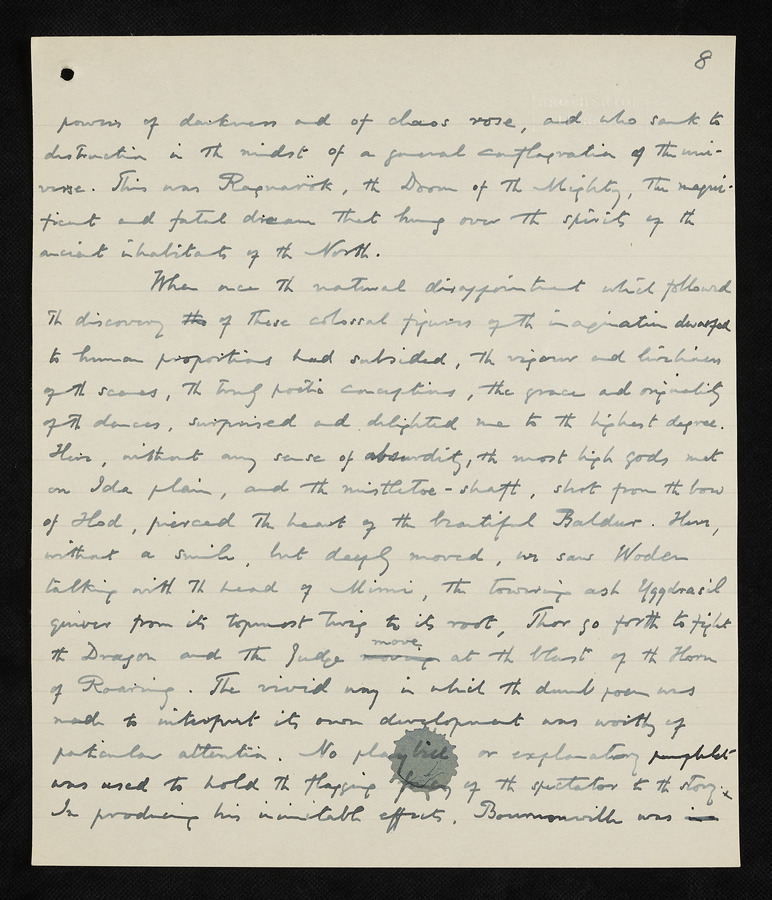 8
powers of darkness and of chaos rose, and who sank to
destruction in the midst of a general conflagration of the uni-
verse. This was Ragnarök, the Doom of the Mighty, the magni-
ficent and fatal dream that hung over the spirits of the
ancient inhabitants of the North.
When once the natural disappointment which followed
the discovery the of these colossal figures of the imagination dwarfed
to human proportions had subsided, the vigour and liveliness
of the scenes, the truly poetic conceptions, the grace and originality
of the dances, surprised and delighted me to the highest degree.
Here, without any sense of absurdity, the most high gods met
on Ida plain, and the mistletoe-shaft, shot from the bow
of Hod, pierced the heart of the beautiful Baldur. Here,
without a smile, but deeply moved, we saw Woden
talking with the head of Mimi, the towering ash Yggdrasil
quiver from its topmost twig to its root, Thor go forth to fight
move
the Dragon and the Judge moving at the blast of the Horn
of Roaring. The vivid way in which the dumb poem was
made to interpret its own development was worthy of
particular attention. No playbill or explanatory pamphlet
was used to hold the flagging of the spectator to the story.
In producing his inimitable effects, Bournonville was in